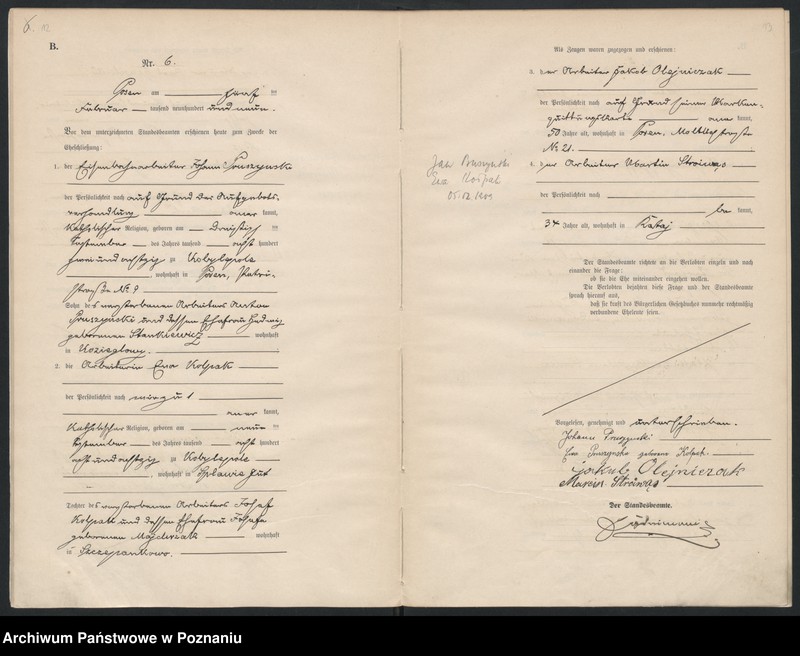 B.
Nr. 6.
Posen am fünf ten
Februar tausend neunhundert und neun.
Vor dem unterzeichneten Standesbeamten erschienen heute zum Zwecke der
Eheschließung:
1. der Eisenbahnarbeiter Johann Pruszynski
der Persönlichkeit nach auf Grund der Aufgebots-
verhandlung aner kannt,
katholischer Religion, geboren am dreißig ten
September des Jahres tausend acht hundert
zwei und achtzig zu Kobylepole
, wohnhaft in Posen,
straße № 8
Sohn des verstorbenen Arbeiters Anton
Pruszynski und dessen Ehefrau Hedwig
geborenen Stankiewicz wohnhaft
in Kozieglowy.
2. die Arbeiterin Eva Kolpak
der Persönlichkeit nach wie zu 1
aner kannt,
katholischer Religion, geboren am neun ten
September des Jahres tausend acht hundert
acht und achtzig zu Kobylepole
, wohnhaft in Splawie Gut
Tochter des verstorbenen Arbeiters Josef
Kolpak und dessen Ehefrau Josefa
geborenen Majchrzak wohnhaft
in Szczepankowo.
Jan Pruszyński
Ewa Kołpak
05.02.1909
Als Zeugen waren zugezogen und erschienen:
3. der Arbeiter Jakob Olejniczak
der Persönlichkeit nach auf Grund seiner Marken-
quittungskarte aner kannt,
50 Jahre alt, wohnhaft in Posen, Moltkestraße
№ 21.
4. der Arbeiter Martin Strówąs
der Persönlichkeit nach
be kannt,
34 Jahre alt, wohnhaft in Rataj
Der Standesbeamte richtete an die Verlobten einzeln und nach
einander die Frage:
ob sie die Ehe miteinander eingehen wollen.
Die Verlobten bejahten diese Frage und der Standesbeamte
sprach hierauf aus,
daß sie kraft des Bürgerlichen Gesetzbuches nunmehr rechtmäßig
verbundene Eheleute seien.
Vorgelesen, genehmigt und unterschrieben.
Johann Pruszynski
Eva Pruszynska geborene Kolpak.
Jakub Olejniczak
Marcin Strówąs
Der Standesbeamte.
Archiwum Państwowe w Poznaniu